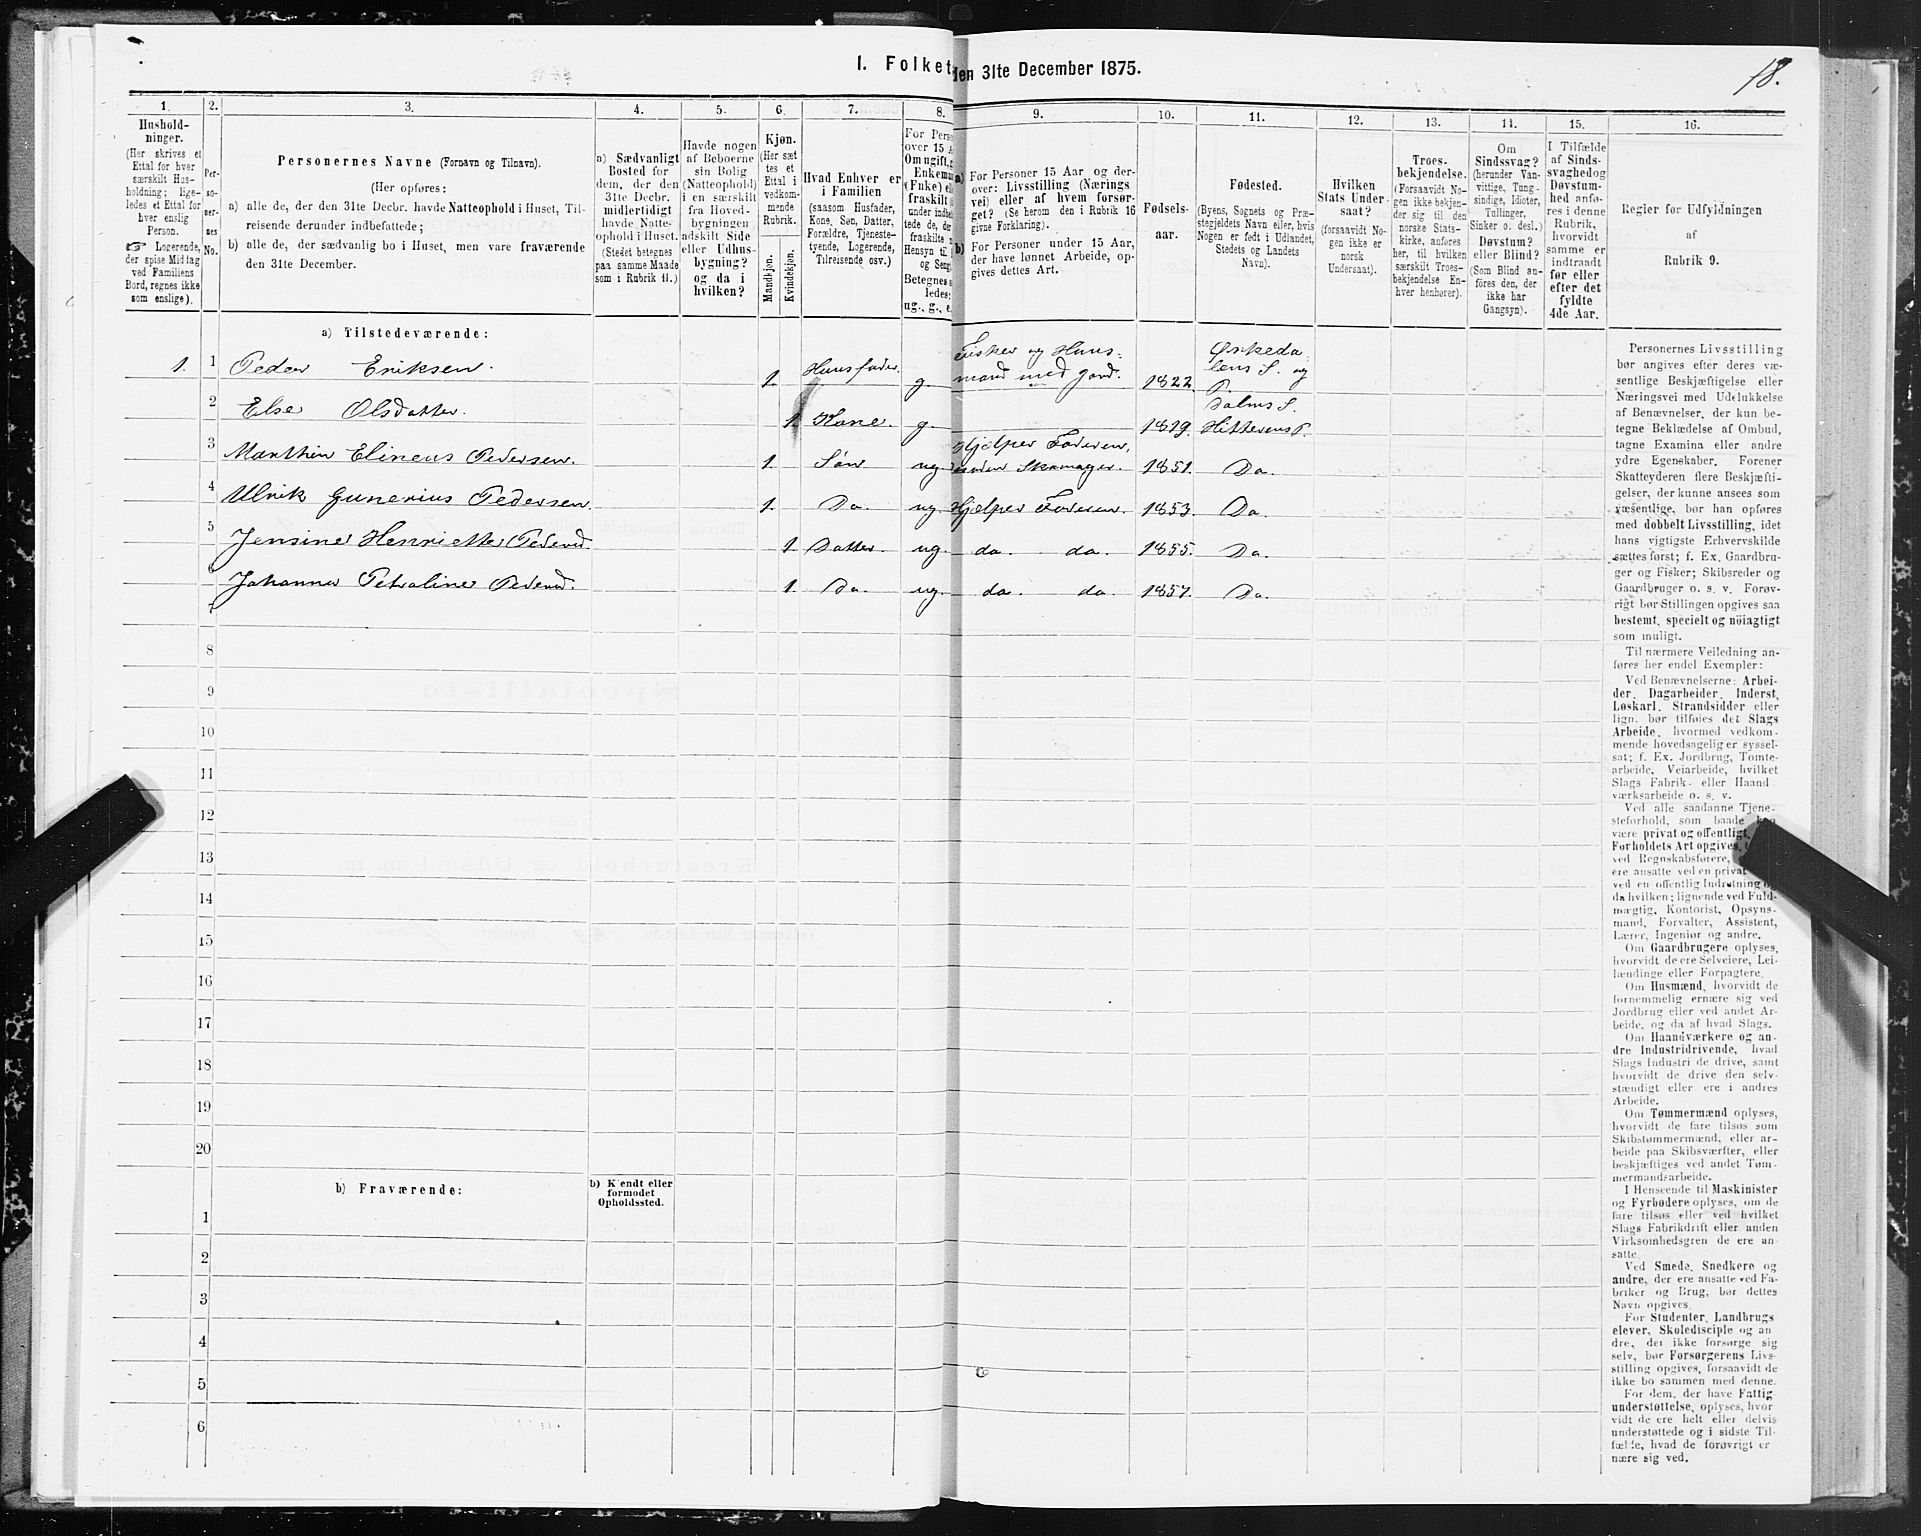 I. Folket
den 31te December 1875.
18.
1.
2.
3.
4.
5.
6.
7.
8.
9.
10.
11.
12.
13.
14.
15.
16.
Hushold-
ninger.
(Her skrives et
Ettal for hver
særskilt Hus-
holdning; lige-
ledes et Ettal for
hver enslig
Person.
☞ Logerende,
der spise Middag
ved Familiens
Bord, regnes ikke
som enslige).
Per-
so-
ner-
nes
No.
Personernes Navne (Fornavn og Tilnavn).
(Her opføres:
a) alle de, der den 31te Decbr. havde Natteophold i Huset, Til-
reisende derunder indbefattede;
b) alle de, der sædvanlig bo i Huset, men vare fraværende
den 31te December.
a) Sædvanligt
Bosted for
dem, der den
31te Decbr.
midlertidigt
havde Natte-
ophold i Huset.
(Stedet betegnes
paa samme Maade
som i Rubrik 11.)
Havde nogen
af Beboerne
sin Bolig
(Natteophold)
i en særskilt
fra Hoved-
bygningen
adskilt Side
eller Udhus-
bygning?
og da i
hvilken?
Kjøn.
(Her sæt
tes et
Ettal i
vedkom-
mende
Rubrik.
Mandkjøn.
Kvindekjøn.
Hvad Enhver er
i Familien
(saasom Husfader,
Kone, Søn, Datter,
Forældre, Tjeneste-
tyende, Logerende,
Tilreisende osv.)
For Perso
over 15 A
Om ugift, g
Enkema
(Fuke) e
fraskilt
under indbe
tede de, der
fraskilte
Hensyn til
og Seng
Betegnes
ledes:
ug., g., e.
a) For Personer 15 Aar og der-
over: Livsstilling (Nærings
vei) eller af hvem forsør-
get? (Se herom den i Rubrik 16
givne Forklaring).
b) For Personer under 15 Aar,
der have lønnet Arbeide, op-
gives dettes Art.
Fødsels-
aar.
Fødested.
(Byens, Sognets og Præ-
stegjeldets Navn eller, hvis
Nogen er født i Udlandet,
Stedets og Landets
Navn).
Hvilken
Stats Under
saat?
(forsaavidt No-
gen ikke er
norsk
Undersaat).
Troes-
bekjendelse.
(Forsaavidt No-
gen ikke bekjen-
der sig til den
norske Stats-
kirke, anføres
her, til hvilken
særskilt Troes-
bekjendelse En-
hver henhører).
Om
Sindssvag?
(herunder Van-
vittige, Tung-
sindige, Idioter,
Tullinger,
Sinker o. desl.)
Døvstum?
eller Blind?
(Som Blind an-
føres den, der
ikke har
Gangsyn).
I Tilfælde
af Sinds-
svaghed og
Døvstum-
hed anfø-
res i denne
Rubrik,
hvorvidt
samme er
indtraadt
før eller
efter det
fyldte
4de Aar.
Regler for Udfyldningen
af
Rubrik 9.
a) Tilstedeværende:
1. 1 Peder Eriksen. 1. Huusfader g. Fisker og Huus-
mand med jord. 1822. Ørkeda
lens S. og
P.
2 Else Olsdatter. 1. Kone. g. 1819. Dalms S.
Hitterens P.
3 Marthin Elineus Pedersen. 1. Søn ug Hjelper Faderen,
desuden Skomager. 1851. Do.
4 Ulrik Gunerius Pedersen. 1. Do. ug Hjelper Faderen. 1853. Do.
5 Jensine Henriette Pedersd. 1. Datter. ug. do. do. 1855. Do.
6 Johanne Petroline Pedersd. 1. Do. ug. do. do. 1857. Do.
7
8
9
10
11
12
13
14
15
16
17
18
19
20
b) Fraværende:
b) Kjendt eller
formodet
Opholdssted.
1
2
3
4
5
6
Personernes Livsstilling
bør angives efter deres væ-
sentlige Beskjæftigelse eller
Næringsvei med Udelukkelse
af Benævnelser, der kun be-
tegne Beklædelse af Ombud,
tagne Examina eller andre
ydre Egenskaber. Forener
Skatteyderen flere Beskjæfti-
gelser, der kunne ansees som
væsentlige, bør han opføres
med dobbelt Livsstilling, idet
hans vigtigste Erhvervskilde
sættes først; f. Ex. Gaardbru-
ger og Fisker; Skibsreder og
Gaardbruger o. s. v. Forøv-
rigt bør Stillingen opgives saa
bestemt, specielt og nöiagtigt
som muligt.
Til nærmere Veiledning an-
føres her endel Exempler:
Ved Benævnelserne: Arbei-
der, Dagarbeider, Inderst,
Løskarl, Strandsidder eller
lign. bør tilføies det Slags
Arbeide, hvormed vedkom-
mende hovedsagelig er syssel-
sat; f. Ex. Jordbrug, Tomte-
arbeide, Veiarbeide, hvilket
Slags Fabrik- eller Haand
værksarbeide o. s. v.
Ved alle saadanne Tjene-
steforhold, som baade kan
være privat og offentligt,
Forholdets Art opgives,
ved Regnskabsførere,
ere ansatte ved en privat
ved en offentlig Indretning og
da hvilken; lignende ved Fuld-
mægtig, Kontorist, Opsyns-
mand, Forvalter, Assistent,
Lærer, Ingeniør og andre.
Om Gaardbrugere oplyses,
hvorvidt de ere Selveiere, Lei-
lændinge eller Forpagtere.
Om Husmænd, hvorvidt de
fornemmelig ernære sig ved
Jordbrug eller ved andet Ar-
beide, og da af hvad Slags.
Om Haandværkere og an-
dre Industridrivende, hvad
Slags Industri de drive, samt
hvorvidt de drive den selv-
stændigt eller ere i andres
Arbeide.
Om Tømmermænd oplyses,
hvorvidt de fare tilsøs som
Skibstømmermænd, eller ar-
beide paa Skibsværfter, eller
beskjæftiges ved andet Tøm-
mermandsarbeide.
I Henseende til Maskinister
og Fyrbødere oplyses, om de
fare tilsøs eller ved hvilket
Slags Fabrikdrift eller anden
Virksomhedsgren de ere an-
satte.
Ved Smede, Snedkere og
andre, der ere ansatte ved Fa-
briker og Brug, bør dettes
Navn opgives.
For Studenter, Landbrugs
elever, Skoledisciple og an
dre, der ikke forsørge sig
selv, bør Forsørgerens Livs-
stilling opgives, forsaavidt de
ikke bo sammen med denne.
For dem, der have Fattig
understøttelse, oplyses, hvor
vidt de ere helt eller delvis
understøttede og i sidste Til-
fælde, hvad de forøvrigt er
nære sig ved.